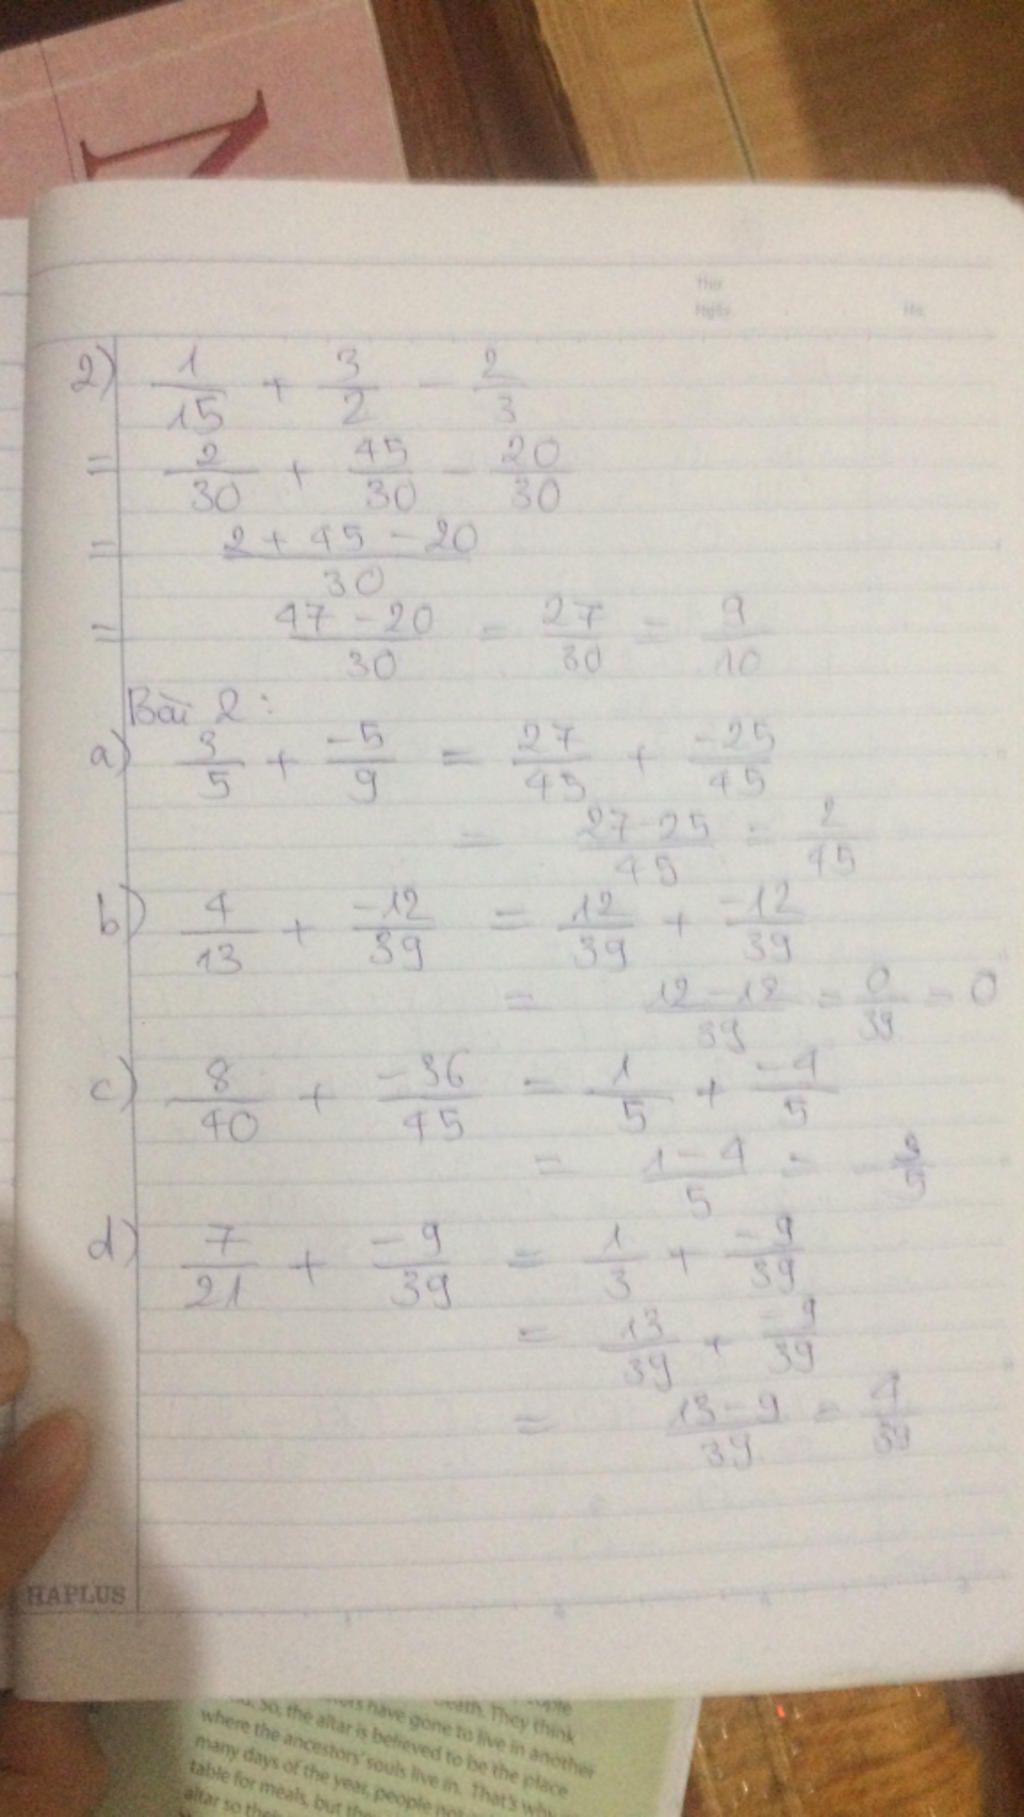 N
Thứ
Ngày
No.
2) 1/15 + 3/2 - 2/3
= 2/30 + 45/30 - 20/30
= (2 + 45 - 20)/30
= (47 - 20)/30 = 27/30 = 9/10
Bài 2:
a) 3/5 + -5/9 = 27/45 + -25/45
= (27-25)/45 = 2/45
b) 4/13 + -12/39 = 12/39 + -12/39
= (12-12)/39 = 0/39 = 0
c) 8/40 + -36/45 = 1/5 + -4/5
= (1-4)/5 = -3/5
d) 7/21 + -9/39 = 1/3 + -9/39
= 13/39 + -9/39
= (13-9)/39 = 4/39
HAPLUS
death. They think
So, the altar is believed to be the place
have gone to live in another
where the ancestors' souls live in. That's why
many days of the year, people
table for meals, but
altar so